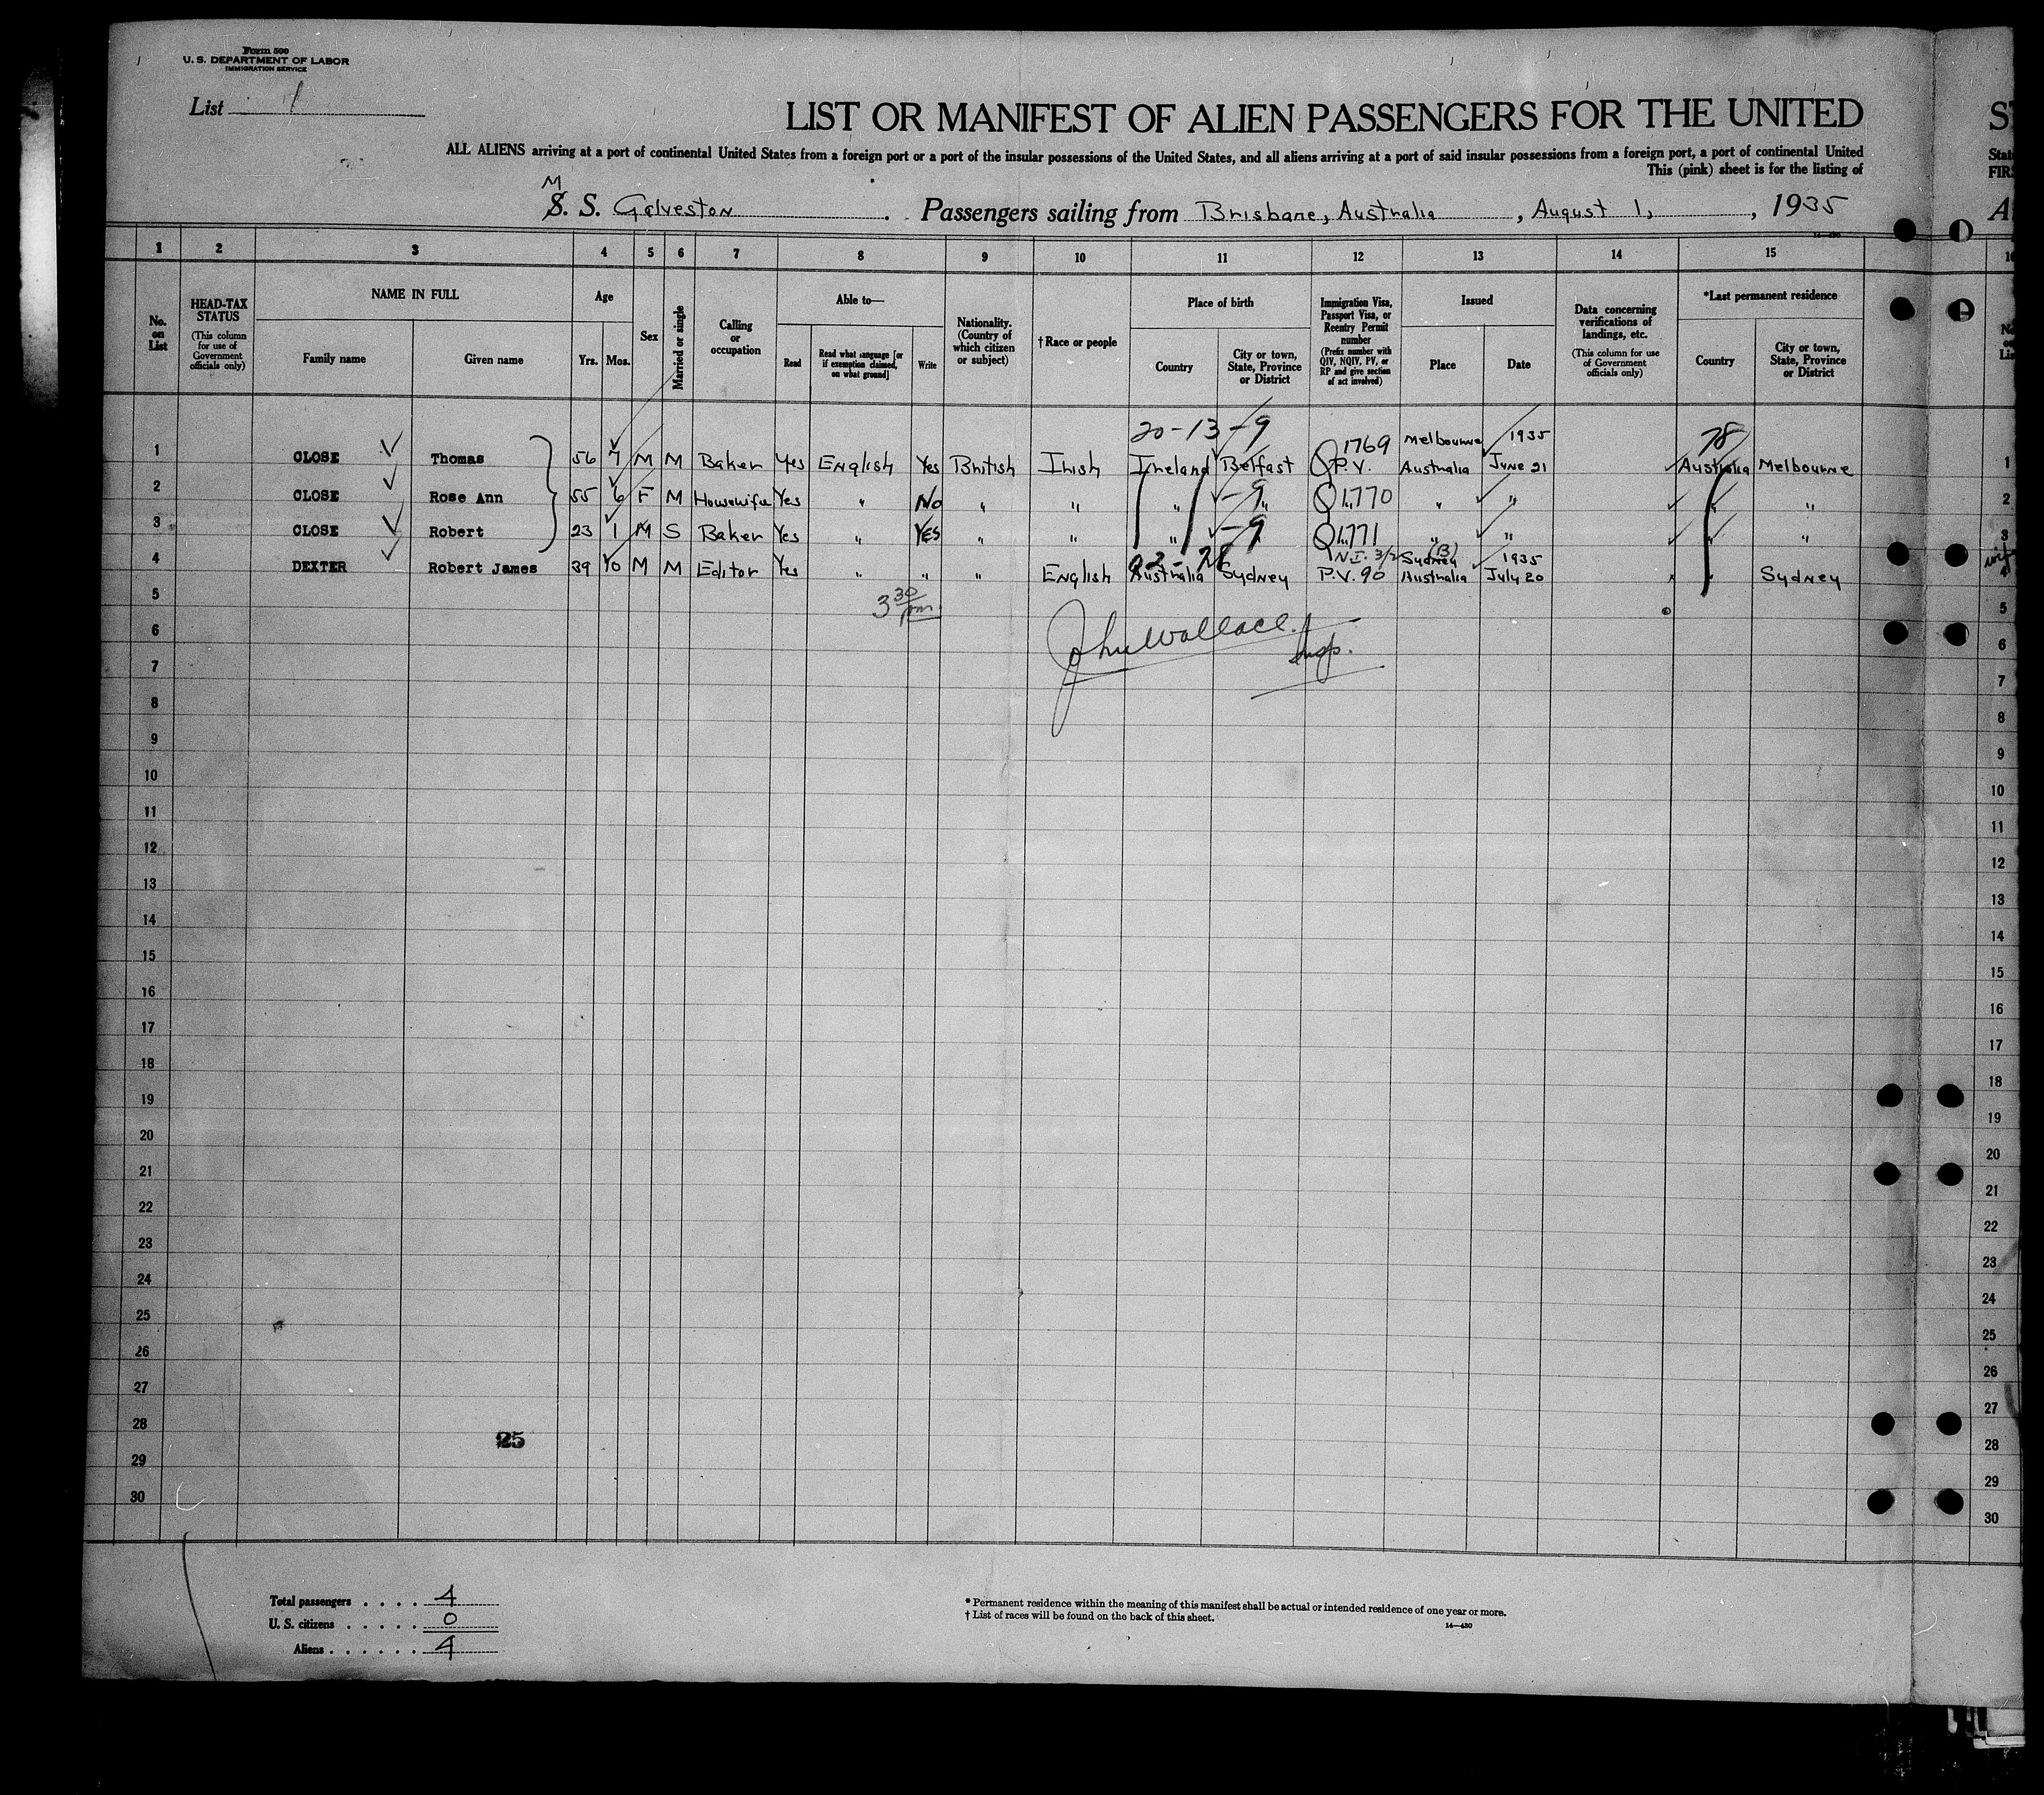 Form 500
U. S. DEPARTMENT OF LABOR
IMMIGRATION SERVICE
List 1
LIST OR MANIFEST OF ALIEN PASSENGERS FOR THE UNITED
ALL ALIENS arriving at a port of continental United States from a foreign port or a port of the insular possessions of the United States, and all aliens arriving at a port of said insular possessions from a foreign port, a port of continental United
This (pink) sheet is for the listing of
M
S. S. Galveston. Passengers sailing from Brisbane, Australia, August 1, , 1935
1 2 3 4 5 6 7 8 9 10 11 12 13 14 15
No. on List
HEAD-TAX STATUS (This column for use of Government officials only)
NAME IN FULL
Family name
Given name
Age
Yrs. Mos.
Sex
Married or single
Calling or occupation
Able to—
Read
Read what language [or if exemption claimed, on what ground]
Write
Nationality. (Country of which citizen or subject)
† Race or people
Place of birth
Country
City or town, State, Province or District
Immigration Visa, Passport Visa, or Reentry Permit number (Prefix number with QIV, NQIV, PV, or RP and give section of act involved)
Issued
Place
Date
Data concerning verifications of landings, etc. (This column for use of Government officials only)
*Last permanent residence
Country
City or town, State, Province or District
20-13-9 78
1 CLOSE Thomas 56 7 M M Baker Yes English Yes British Irish Ireland Belfast Q 1769 P.V. Melbourne Australia 1935 June 21 Australia Melbourne 1
2 CLOSE Rose Ann 55 6 F M Housewife Yes " No " " " -9 " Q " 1770 " " " " 2
3 CLOSE Robert 23 1 M S Baker Yes " YES " " " -9 " Q " 1771 " " " " 3
4 DEXTER Robert James 39 10 M M Editor Yes " " " English Australia Sydney N.I. 3/2 P.V. 90 (B) Sydney Australia 1935 July 20 " Sydney 4
5 3 30 pm 5
6 John Wallace. Insp. 6
7 7
8 8
9 9
10 10
11 11
12 12
13 13
14 14
15 15
16 16
17 17
18 18
19 19
20 20
21 21
22 22
23 23
24 24
25 25
26 26
27 27
28 25 28
29 29
30 30
Total passengers . . . . 4
U. S. citizens . . . . . 0
Aliens . . . . . . 4
* Permanent residence within the meaning of this manifest shall be actual or intended residence of one year or more.
† List of races will be found on the back of this sheet.
14—430